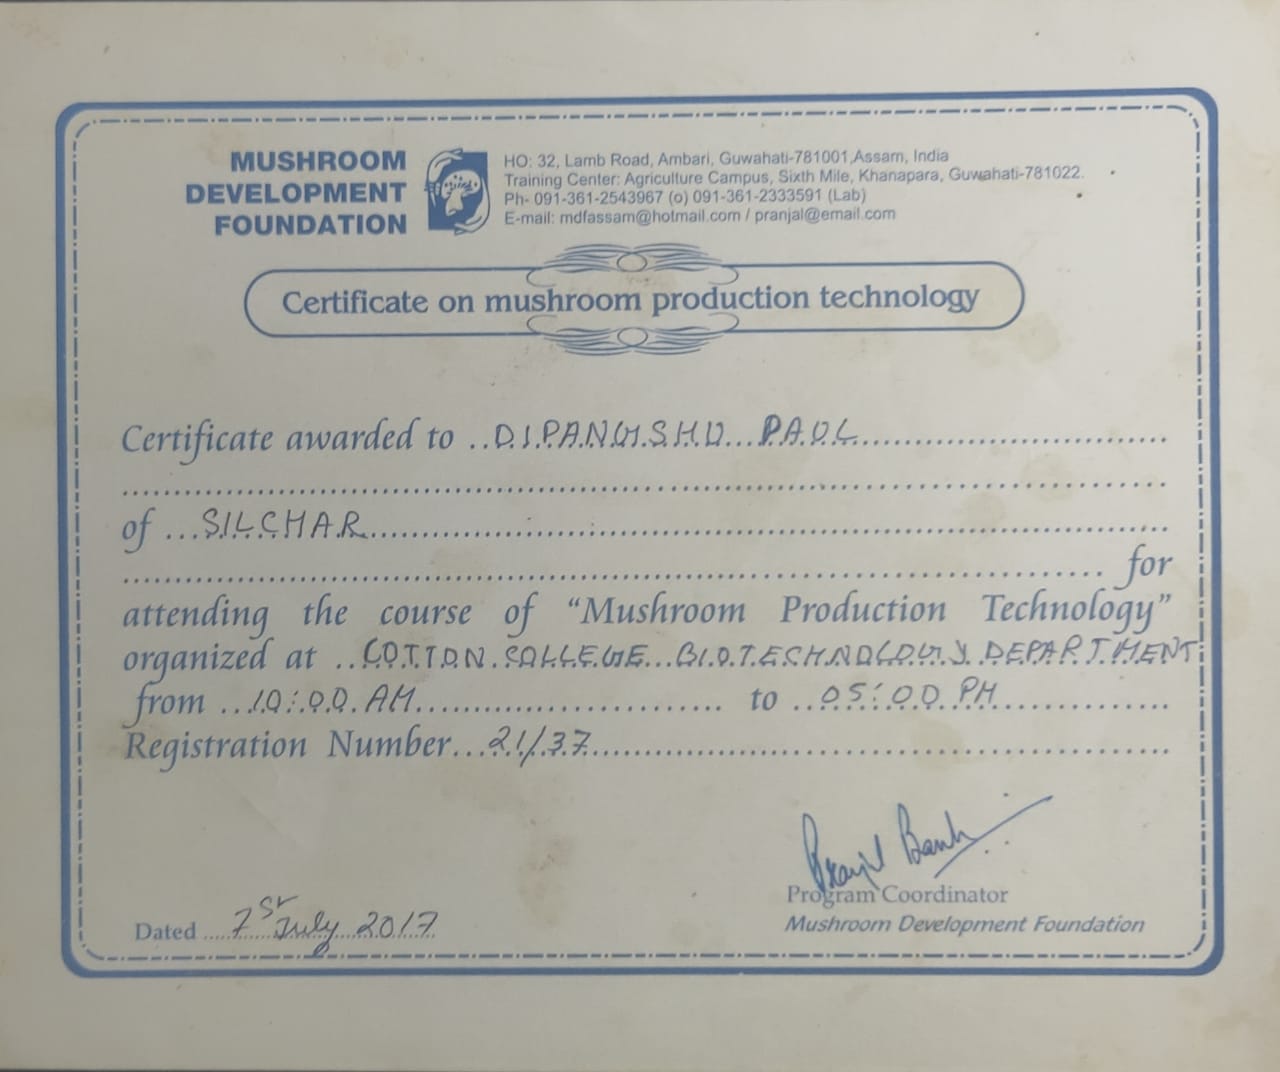 MUSHROOM
DEVELOPMENT
FOUNDATION
HO: 32, Lamb Road, Ambari, Guwahati-781001,Assam, India
Training Center: Agriculture Campus, Sixth Mile, Khanapara, Guwahati-781022.
Ph- 091-361-2543967 (o) 091-361-2333591 (Lab)
E-mail: mdfassam@hotmail.com / pranjal@email.com
Certificate on mushroom production technology
Certificate awarded to DIPANGSHU PAUL
of SILCHAR
for
attending the course of “Mushroom Production Technology”
organized at COTTON COLLEGE BIOTECHNOLOGY DEPARTMENT
from 10:00 AM to 05:00 PM
Registration Number 21/37
Program Coordinator
Mushroom Development Foundation
Dated July 2017